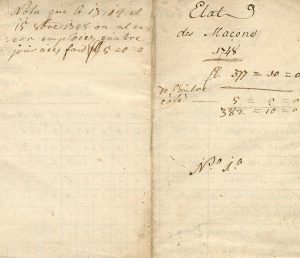 Nota que le 13. 14 et
15 8bre 1748 on a
employez quatre
journées fait fl 5=0=0
Etat
des Maçons
1748
fl 377=10=0
de l'autre
coté 5=0=0
382=10=0
N.o 1.o